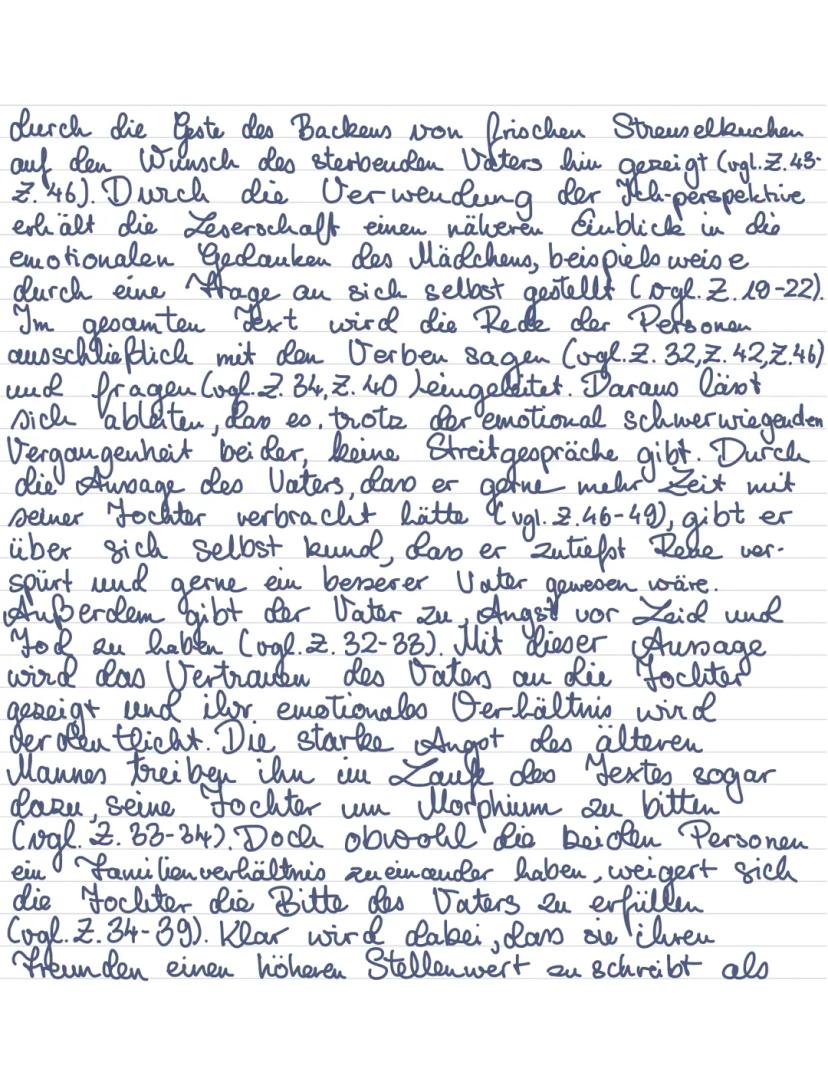 durch die Geste des Backens von frischen Streuselkuchen
auf den Wunsch des sterbenden Vaters hin gezeigt (vgl. Z. 43-
Z. 46). Durch die Verwendung der Ich-perspektive
erhält die Leserschaft einen näheren Einblick in die
emotionalen Gedanken des Mädchens, beispielsweise
durch eine Frage an sich selbst gestellt (vgl. Z. 19-22).
Im gesamten Text wird die Rede der Personen
ausschließlich mit den Verben sagen (vgl. Z. 32, Z. 42, Z. 46)
und fragen (vgl. Z. 34, Z. 40) eingeleitet. Daraus lässt
sich ableiten, dass es, trotz der emotional schwerwiegenden
Vergangenheit beider, keine Streitgespräche gibt. Durch
die Aussage des Vaters, dass er gerne mehr Zeit mit
seiner Tochter verbracht hätte (vgl. Z. 46-49), gibt er
über sich selbst kund, dass er zutiefst Reue ver-
spürt und gerne ein besserer Vater gewesen wäre.
Außerdem gibt der Vater zu, Angst vor Leid und
Tod zu haben (vgl. Z. 32-33). Mit dieser Aussage
wird das Vertrauen des Vaters an die Tochter
gezeigt und ihr emotionales Verhältnis wird
verdeutlicht. Die starke Angst des älteren
Mannes treiben ihn im Laufe des Textes sogar
dazu, seine Tochter um Morphium zu bitten
(vgl. Z. 33-34). Doch obwohl die beiden Personen
ein Familienverhältnis zueinander haben, weigert sich
die Tochter die Bitte des Vaters zu erfüllen
(vgl. Z. 34-39). Klar wird dabei, dass sie ihren
Freunden einen höheren Stellenwert zuschreibt als